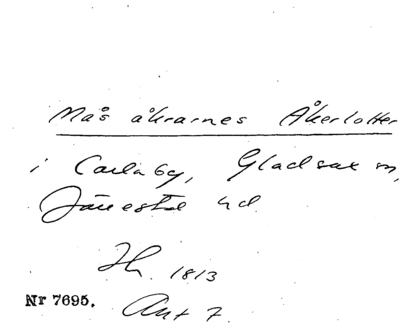 Mås åkrarnes Åkerlotter
i Carlaby, Gladsax sn,
Järrestad hd.
Hn 1813
Nr 7695.
Ant 7